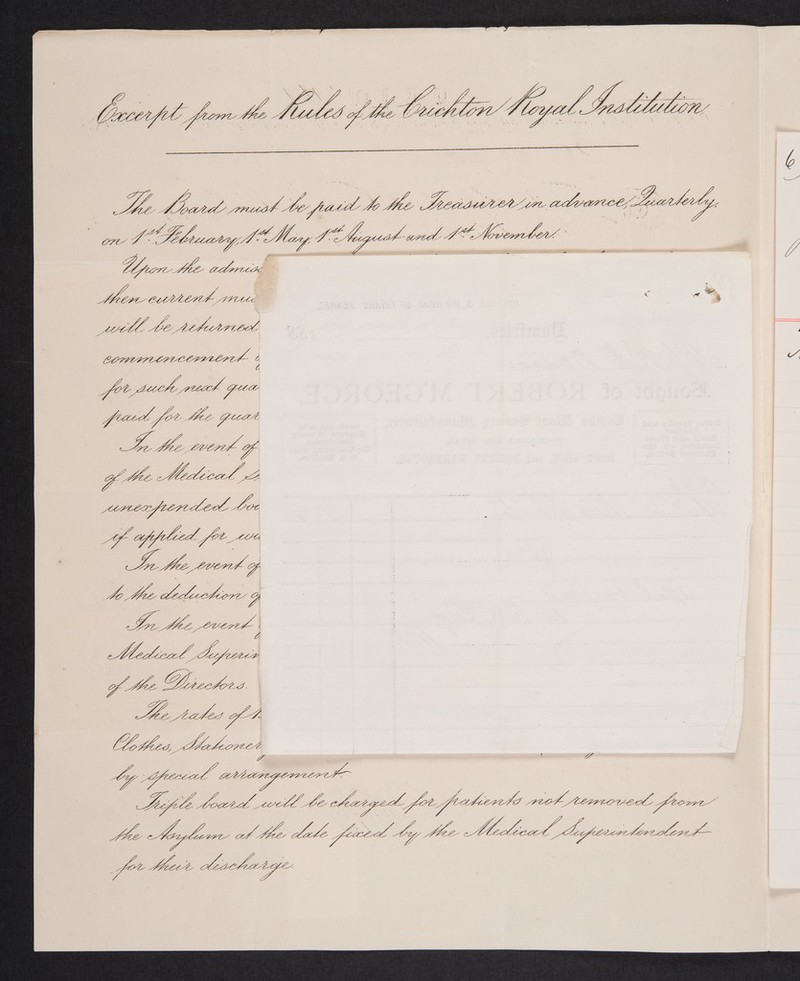 Excerpt from the Rules of the Crichton Royal Institution
The Board must be paid to the Treasurer in advance, Quarterly,
on 1st February, 1st May, 1st August and 1st November.
Upon the admis
then current mu
will be returned
commencement
for such next qua
paid for the quar
In the event of
of the Medical
unexpended bo
if applied for
In the event of
to the deduction
In the event
Medical Superin
of the Directors.
The rates of
Clothes, Stationer
by special arrangement
Triple board will be charged for patients not removed from
the Asylum at the date fixed by the Medical Superintendent
for their discharge